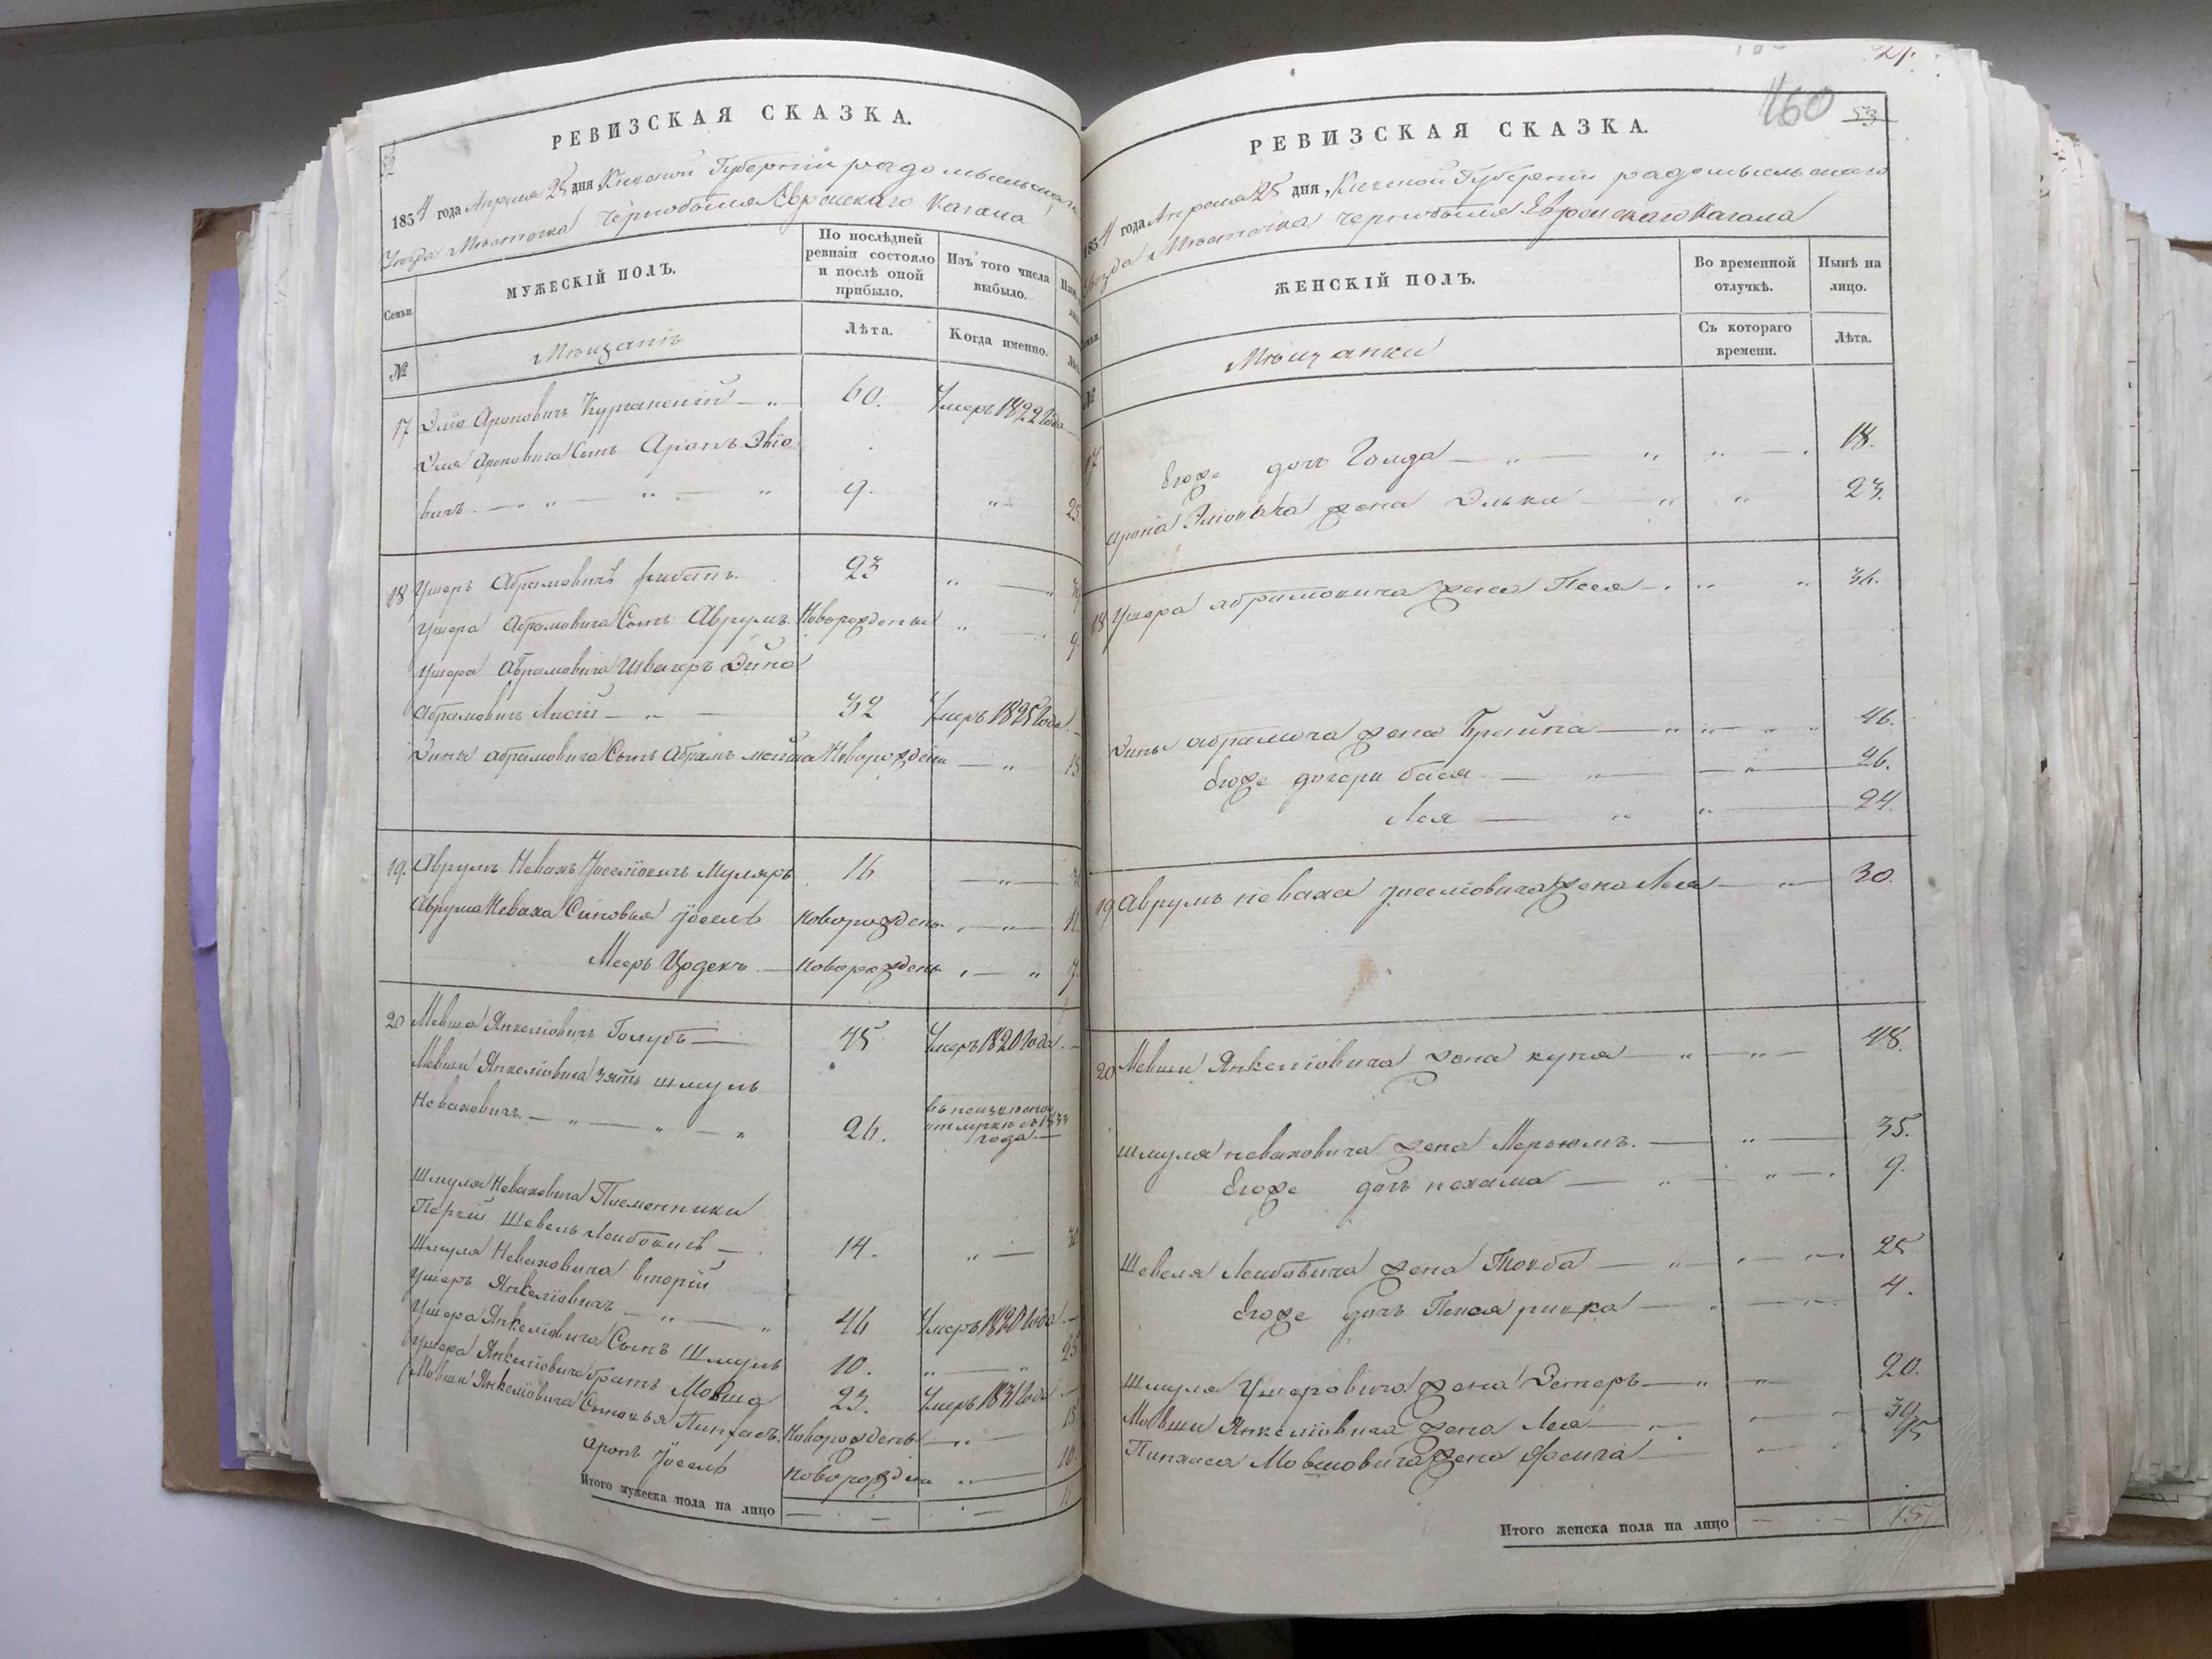 РЕВИЗСКАЯ СКАЗКА.
1834 года Апреля 25 дня Киевской Губернии радомысльскаго
Уезда Мѣстечка Чернобыля Еврейскаго Кагала
Семьи.
МУЖЕСКІЙ ПОЛЪ.
По послѣдней ревизіи состояло и послѣ оной прибыло.
Изъ того числа выбыло.
№
Мѣщанѣ
Лѣта.
Когда именно.
17 Эліо Ароновичъ Курганскій — 60. Умеръ 1822 Года
Эліи Ароновича Сынъ Аронъ Эліо
вичъ — 9. 25
18 Ушеръ Абрамовичъ 23
Ушера Абрамовича Сынъ Аврумъ Новорожденъ 9
Ушера Абрамовича Швагеръ Дина
Абрамовичъ 32 Умеръ 1825 Года
Дины абрамовича Сынъ Абрамъ Новорожденъ 15
19. Аврумъ Невахъ Іоселіовичъ Муляръ 16
Аврума Неваха Синовья Іосель новорожденъ 11
Мееръ новорожденъ 7
20 Мовша Янкеліовичъ Голубъ — 45 Умеръ 1820 Года
Мовши Янкеліовича зять шмуль
Неваховичъ — 26. 1833 года
Шмуля Неваховича Племенники
Первій Шевель Лейбовичъ — 14.
Шмуля Неваховича вторій
Ушеръ Янкеліовичъ — 46 Умеръ 1820 Года
Ушера Янкеліовича Сынъ Шмуль 10. 25
Ушера Янкеліовича братъ Мовша 23. Умеръ 1831 Года
Мовши Янкеліовича Сыновья Пинхасъ Новорожденъ 15
Аронъ Іосель новорожден 10.
Итого мужеска пола на лицо
160 53
РЕВИЗСКАЯ СКАЗКА.
1834 года Апреля 25 дня, Киевской Губерніи радомысльскаго
Уезда Мѣстечка Чернобыля Еврейскаго Кагала
ЖЕНСКІЙ ПОЛЪ.
Во временной отлучкѣ.
Нынѣ на лицо.
№
Мѣщанки
Съ котораго времени.
Лѣта.
17 Егоже дочъ Голда — 18.
Арона Эліовича жена Элька 23.
18 Ушера абрамовича жена Песя — 36.
Дины абрамовича жена Брайна — 46.
Егоже дочери бася — 26.
Лея — 24.
19 Аврумъ неваха іоселіовича жена Лея — 30.
20 Мовши Янкеліовича жена куна — 48.
Шмуля неваховича жена Мерьюмъ. — 35.
Егоже дочъ нехама — 9.
Шевеля Лейбовича жена Товба — 25
Егоже дочъ — 4.
Шмуля Ушеровича жена Эстеръ — 20.
Мовши Янкеліовича жена Лея — 30
Пинхаса Мовшовича жена 15
Итого женска пола на лицо 15